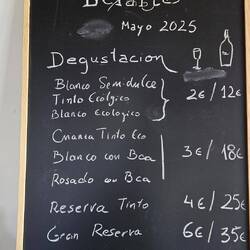 Mayo 2025
Degustacion
Blanco Semidulce
Tinto Ecolgico
Blanco Ecologico
2€ / 12€
Crianza Tinto Eco
Blanco con Bca
Rosado con Bca
3€ / 18€
Reserva Tinto 4€ / 25€
Gran Reserva 6€ / 35€